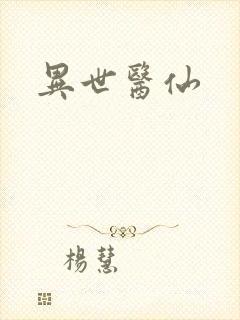 異世醫仙
楊慧